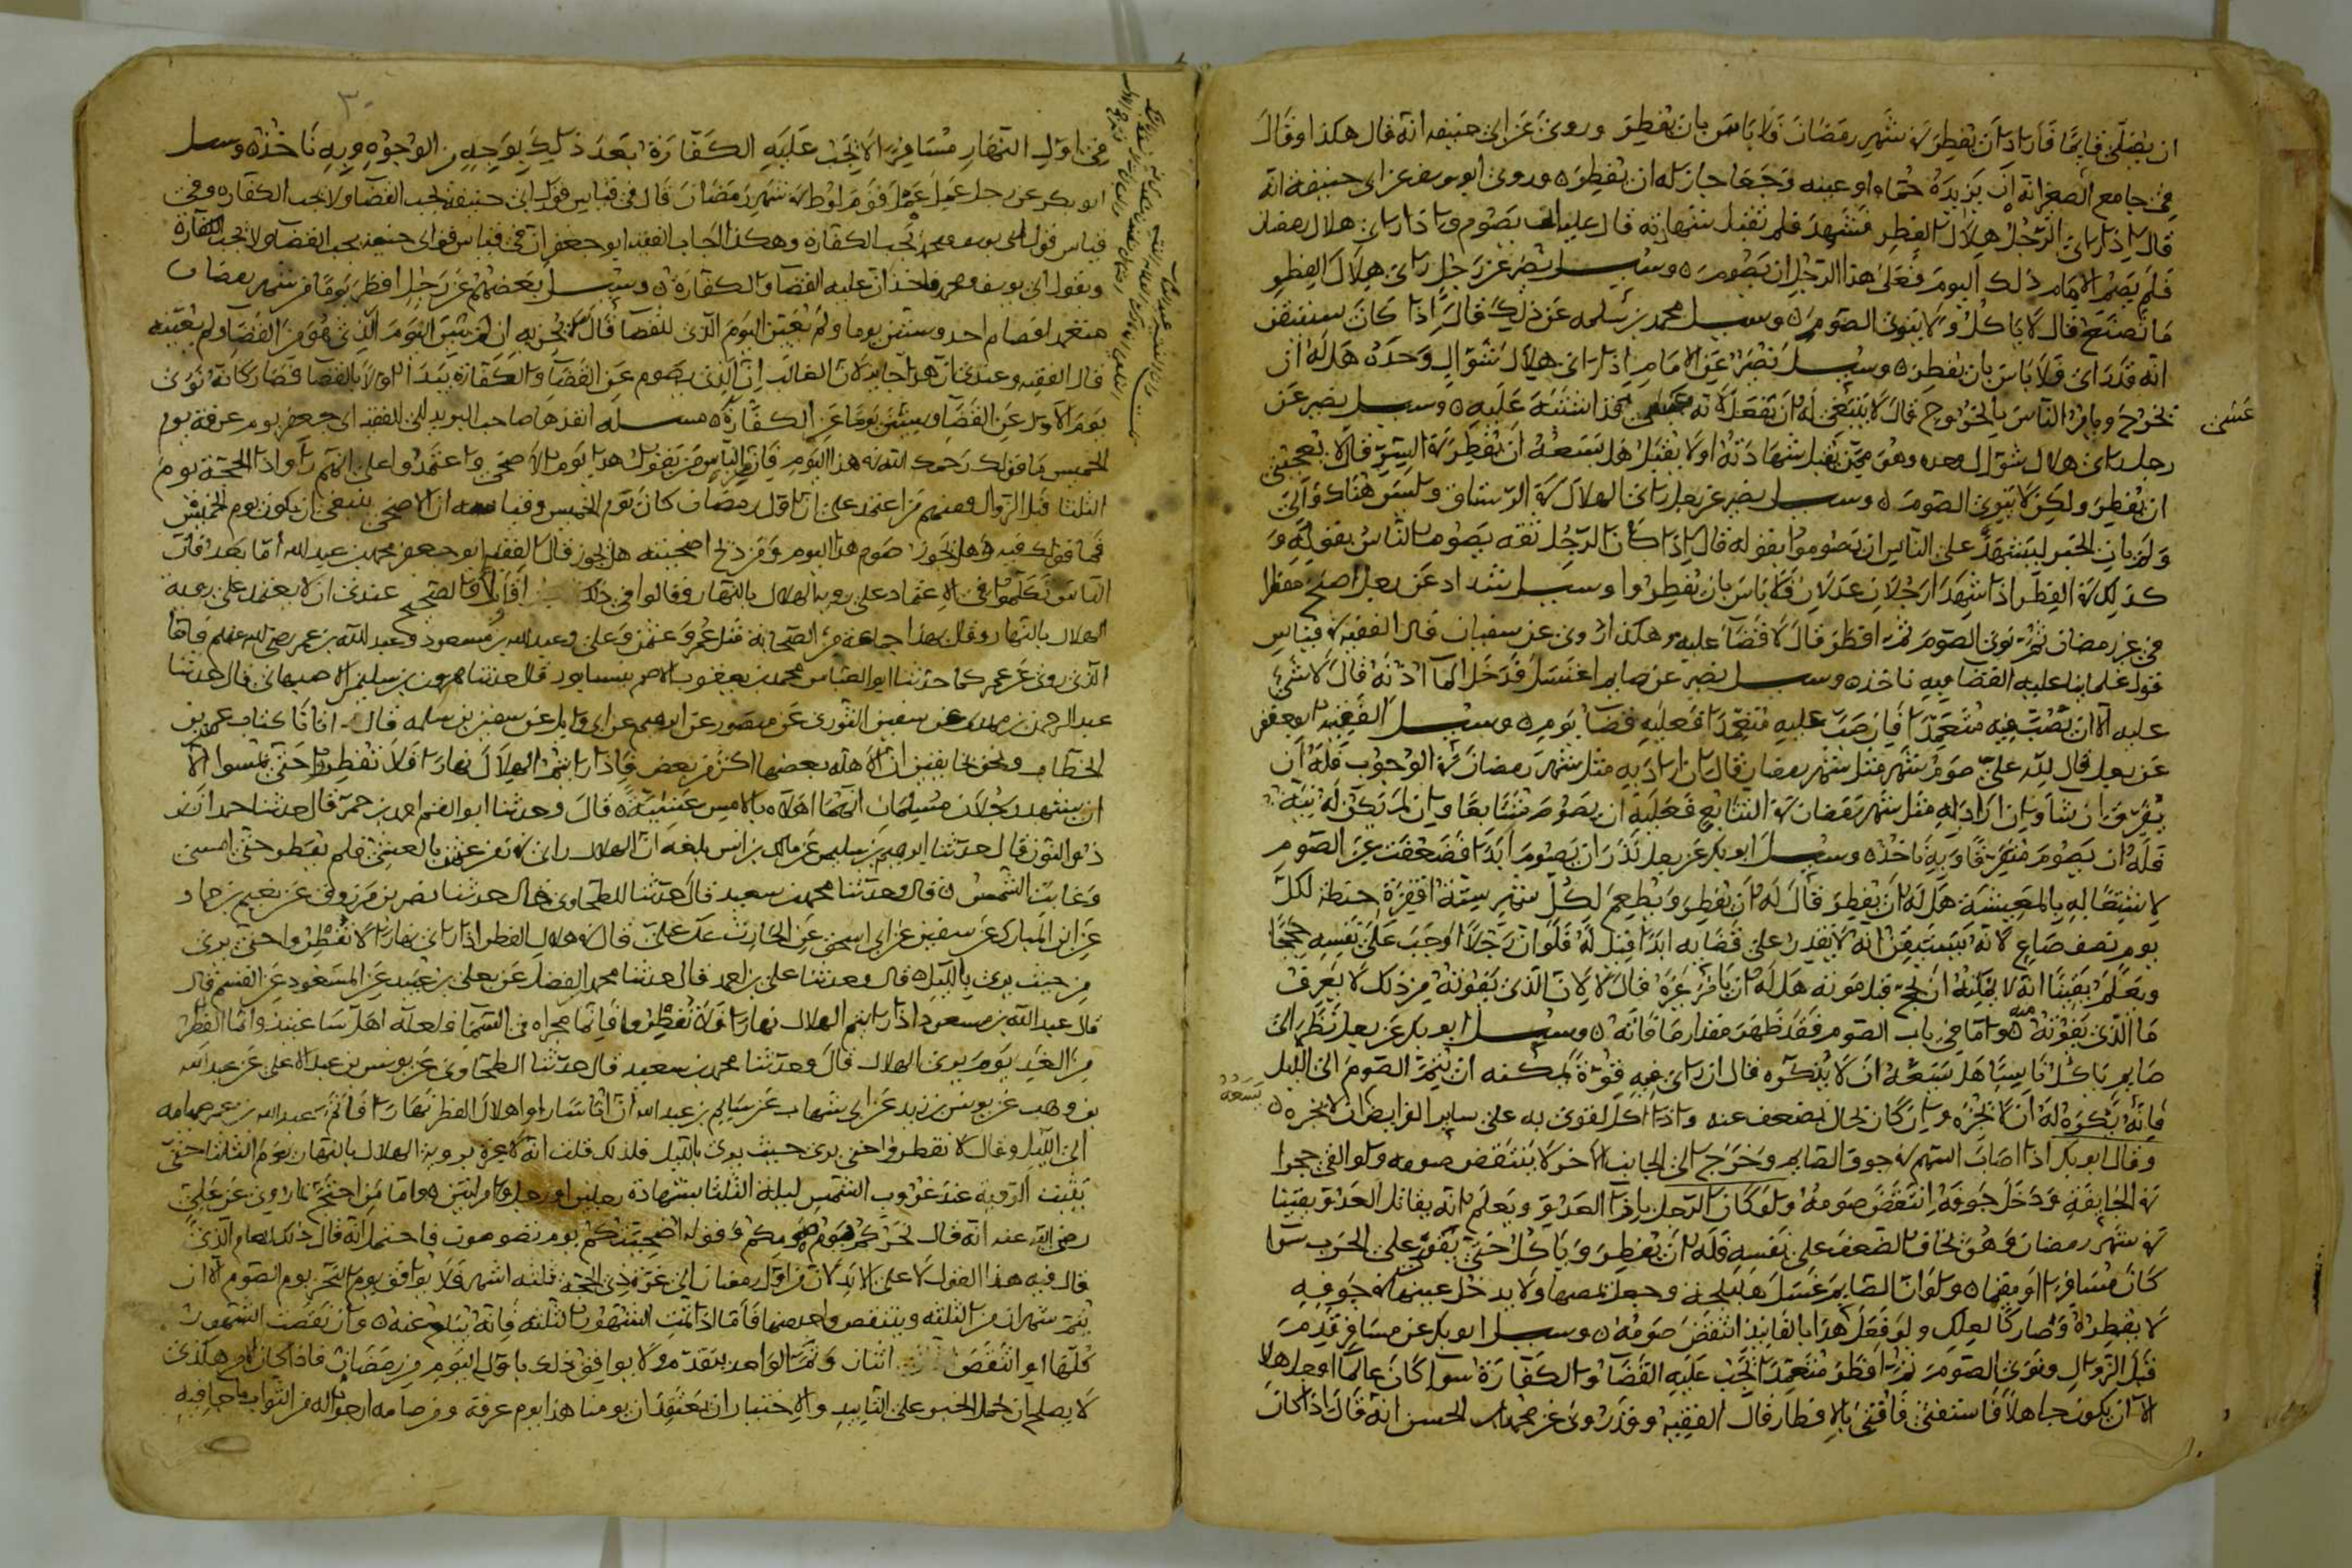 ان يصلي قايما فاراد ان يفطر في شهر رمضان فلا باس بان يفطر وروي عن ابي حنيفه انه قال هكذا وقال
في جامع الصغر انه ان يزيده حماه او عينه وجعا جاز له ان يفطره وروي ابو يوسف عن ابي حنيفة انه
قال اذا راي الرجل هلال الفطر فشهد فلم تقبل شهادته قال عليه ان يصوم واذا راي هلال رمضان
فلم يصم الامام ذلك اليوم فعلى هذا الرجل ان يصومه وسيل نصر عن رجل راى هلال الفطر
ما يصنع قال لا ياكل ولا ينوي الصوم وسيل محمد بن سلمه عن ذلك قال اذا كان يستيقن
انه قد راى فلا باس بان يفطره وسيل نصر عن الامام اذا راى هلال شوال وحده هل له ان
يخرج ويامر الناس بالخروج قال لا ينبغي له ان يفعل لانه اشتبه عليه وسيل نصر عن
رجل راى هلال شوال وحده وهو ممن يقبل شهادته او لا يقبل هل يسعه ان يفطر في السر قال لا يعجبني
ان يفطر ولكن لا ينوي الصوم وسيل نصر عن رجل راى الهلال في الرستاق وليس هناك والي
ولم يات الخبر ليشهد على الناس ان يصوموا بقوله قال اذا كان الرجل ثقة يصوم الناس بقوله و
كذلك في الفطر اذا شهد رجلان عدلان فلا باس بان يفطروا وسيل شداد عن رجل اصبح مفطرا
في غير رمضان ثم نوى الصوم ثم افطر قال لا قضا عليه وهكذا روي عن سفيان قال الفقيه في قياس
قول علماينا عليه القضا وبه ناخذ وسيل نصر عن صايم اغتسل فدخل الما اذنه قال لا شيء
عليه الا ان يصب فيه متعمدا فان صب عليه متعمدا فعليه قضا يوم وسيل الفقيه ابو جعفر
عن رجل قال لله علي صوم شهر مثل شهر رمضان قال ان اراد به مثل شهر رمضان في الوجوب فله ان
يفرق ان شا وان اراد به مثل شهر رمضان في التتابع فعليه ان يصوم متتابعا وان لم تكن له نية
فله ان يصوم متفرقا وبه ناخذ وسيل ابو بكر عن رجل نذر ان يصوم ابدا فضعفت عن الصوم
لاشتغاله بالمعيشة هل له ان يفطر قال له ان يفطر ويطعم لكل شهر ستة اقفزة حنطة لكل
يوم نصف صاع لانه يستيقن انه لا يقدر على قضايه ابدا قيل له فلو ان رجلا اوجب على نفسه حججا
ويعلم يقينا انه لا يمكنه ان يحج قبل موته هل له ان يامر غيره قال لا لان الذي يفوته من ذلك لا يعرف
ما الذي يفوته منه واما في باب الصوم فقد ظهر مقدار ما فاته وسيل ابو بكر عن رجل نظر الى
صايم ياكل ناسيا هل يسعه ان لا يذكره قال ان راى فيه قوة يمكنه ان يتم الصوم الى الليل
فانه يكره له ان لا يخبره وان كان بحال يضعف عنه واذا اكل يقوى به على ساير الفرايض ان لا يخبره
وقال ابو بكر اذا اصاب السهم في جوف الصايم وخرج الى الجانب الاخر لا ينتقض صومه ولو القى حجرا
في الجايفة ودخل جوفه انتقض صومه ولو كان الرجل بازا العدو ويعلم انه يقاتل العدو يقينا
في شهر رمضان وهو يخاف الضعف على نفسه فله ان يفطر وياكل حتى يتقوى على الحرب سوا
كان مسافرا او مقيما ولو ان الصايم غسل وجعل يمصها ولا يدخل عينها في جوفه
لا يفطره وصار كالعلك ولو فعل هذا بالفانيذ انتقض صومه وسيل ابو بكر عن مسافر قدم
قبل الزوال ونوى الصوم ثم افطر متعمدا تجب عليه القضا والكفارة سوا كان عالما او جاهلا
الا ان يكون جاهلا فاستفتى فافتي بالافطار قال الفقيه وقد روي عن محمد بن الحسن انه قال اذا كان
في اول النهار مسافرا لا يجب عليه الكفارة بعد ذلك بوجه من الوجوه وبه ناخذ وسيل
ابو بكر عن رجل عمل عمل قوم لوط في شهر رمضان قال في قياس قول ابي حنيفة يجب القضا ولا يجب الكفاره وفي
قياس قول ابي يوسف ومحمد تجب الكفارة وهكذا اجاب الفقيه ابو جعفر ان في قياس قول ابي حنيفة يجب القضا ولا يجب الكفارة
وبقول ابي يوسف ومحمد ناخذ ان عليه القضا والكفارة وسيل بعضهم عن رجل افطر يوما من شهر رمضان
متعمدا فصام احد وستين يوما ولم يعين اليوم الذي للقضا قال لا يجزيه ان لم يبين اليوم الذي هو من القضا ولم يعينه
قال الفقيه وعندي ان هذا جايز لان الغالب ان الذي يصوم عن القضا والكفارة يبدا اولا بالقضا فصار كانه نوى
يوم الاول عن القضا وستين يوما عن الكفارة مسله انفذها صاحب البريد الى الفقيه ابي جعفر يوم عرفة يوم
الخميس ما قولك رحمك الله في هذا اليوم فان من الناس من يقول هذا يوم الاضحى واعتمدوا على انهم راوا ذا الحجة يوم
الثلثا قبل الزوال ومنهم من اعتمد على ان اول رمضان كان يوم الخميس وقياسه ان الاضحى ينبغي ان يكون يوم الخميس
فما قولك فيه وهل يجوز صوم هذا اليوم ومن ذبح اضحيته هل يجوز قال الفقيه ابو جعفر محمد بن عبد الله اما بعد فان
الناس تكلموا في الاعتماد على روية الهلال بالنهار وقالوا في ذلك اقاويل والصحيح عندي ان لا يعتمد على روية
الهلال بالنهار وقال بهذا جماعة من الصحابة مثل عمر وعثمن وعلي وعبد الله بن مسعود وعبد الله بن عمر رضي الله عنهم فاما
الذي روي عن عمر كما حدثنا ابو العباس محمد بن يعقوب الاصم بنيسابور قال حدثنا هرون بن سليمن الاصبهاني قال حدثنا
عبد الرحمن بن مهدي عن سفين الثوري عن منصور عن ابرهيم عن ابي وايل عن شقيق بن سلمه قال اتانا كتاب عمر بن
الخطاب ونحن بخانقين ان الاهلة بعضها اكبر من بعض فاذا رايتم الهلال نهارا فلا تفطروا حتى تمسوا الا
ان يشهد رجلان مسلمان انهما اهلاه بالامس عشية قال وحدثنا ابو القسم احمد بن حمزة قال حدثنا حمدان بن
ذو النون قال حدثنا ابرهيم بن سليمن عن مالك بن انس بلغه ان الهلال راي في زمن عثمن بالعشي فلم يفطر حتى امسى
وغابت الشمس قال وحدثنا محمد بن سعيد قال حدثنا الطحاوي قال حدثنا نصر بن مرزوق عن نعيم بن حماد
عن ابن المبارك عن سفين عن ابي اسحق عن الحارث عن علي قال في هلال الفطر اذا راي نهارا لا تفطروا حتى يرى
من حيث يرى بالليل قال وحدثنا علي بن احمد قال حدثنا محمد بن الفضل عن يعلى بن عبيد عن المسعودي عن القسم قال
قال عبد الله بن مسعود اذا رايتم الهلال نهارا فلا تفطروا فانما مجراه في السما ولعله اهل ساعتيذ وانما الفطر
من الغد يوم يرى الهلال قال وحدثنا محمد بن سعيد قال حدثنا الطحاوي عن يونس بن عبد الاعلى عن عبد الله
بن وهب عن يونس بن يزيد عن ابن شهاب عن سالم بن عبد الله ان اناسا راوا هلال الفطر نهارا فاتم عبد الله بن عمر صيامه
الى الليل وقال لا تفطروا حتى يرى حيث يرى بالليل فلذلك قلت انه لا عبرة بروية الهلال بالنهار يوم الثلثا حتى
يثبت الروية عند غروب الشمس ليلة الثلثا بشهادة رجلين او رجل وامراتين واما من احتج بما روي عن علي
رضي الله عنه انه قال نحركم يوم صومكم وقوله اضحيتكم يوم تصومون فاحتمل انه قال ذلك لعام الذي
قال فيه هذا القول لا على الابد لان من اول رمضان الى غرة ذي الحجة ثلثه اشهر فلا يوافق يوم النحر يوم الصوم الا ان
يتم شهران من الثلثه وينتقص واحد منها فاما اذا تمت الشهور الثلثه فانه يتاخر عنه وان نقصت الشهور
كلها او انتقص اثنان وتم الواحد يتقدم ولا يوافق ذلك باول اليوم من رمضان فاذا كان الامر هكذى
لا يصلح ان يحمل الخبر على التابيد والاختيار ان يعتقد ان يومنا هذا يوم عرفة ومن صامه ارجوا له من الثواب ما جا فيه